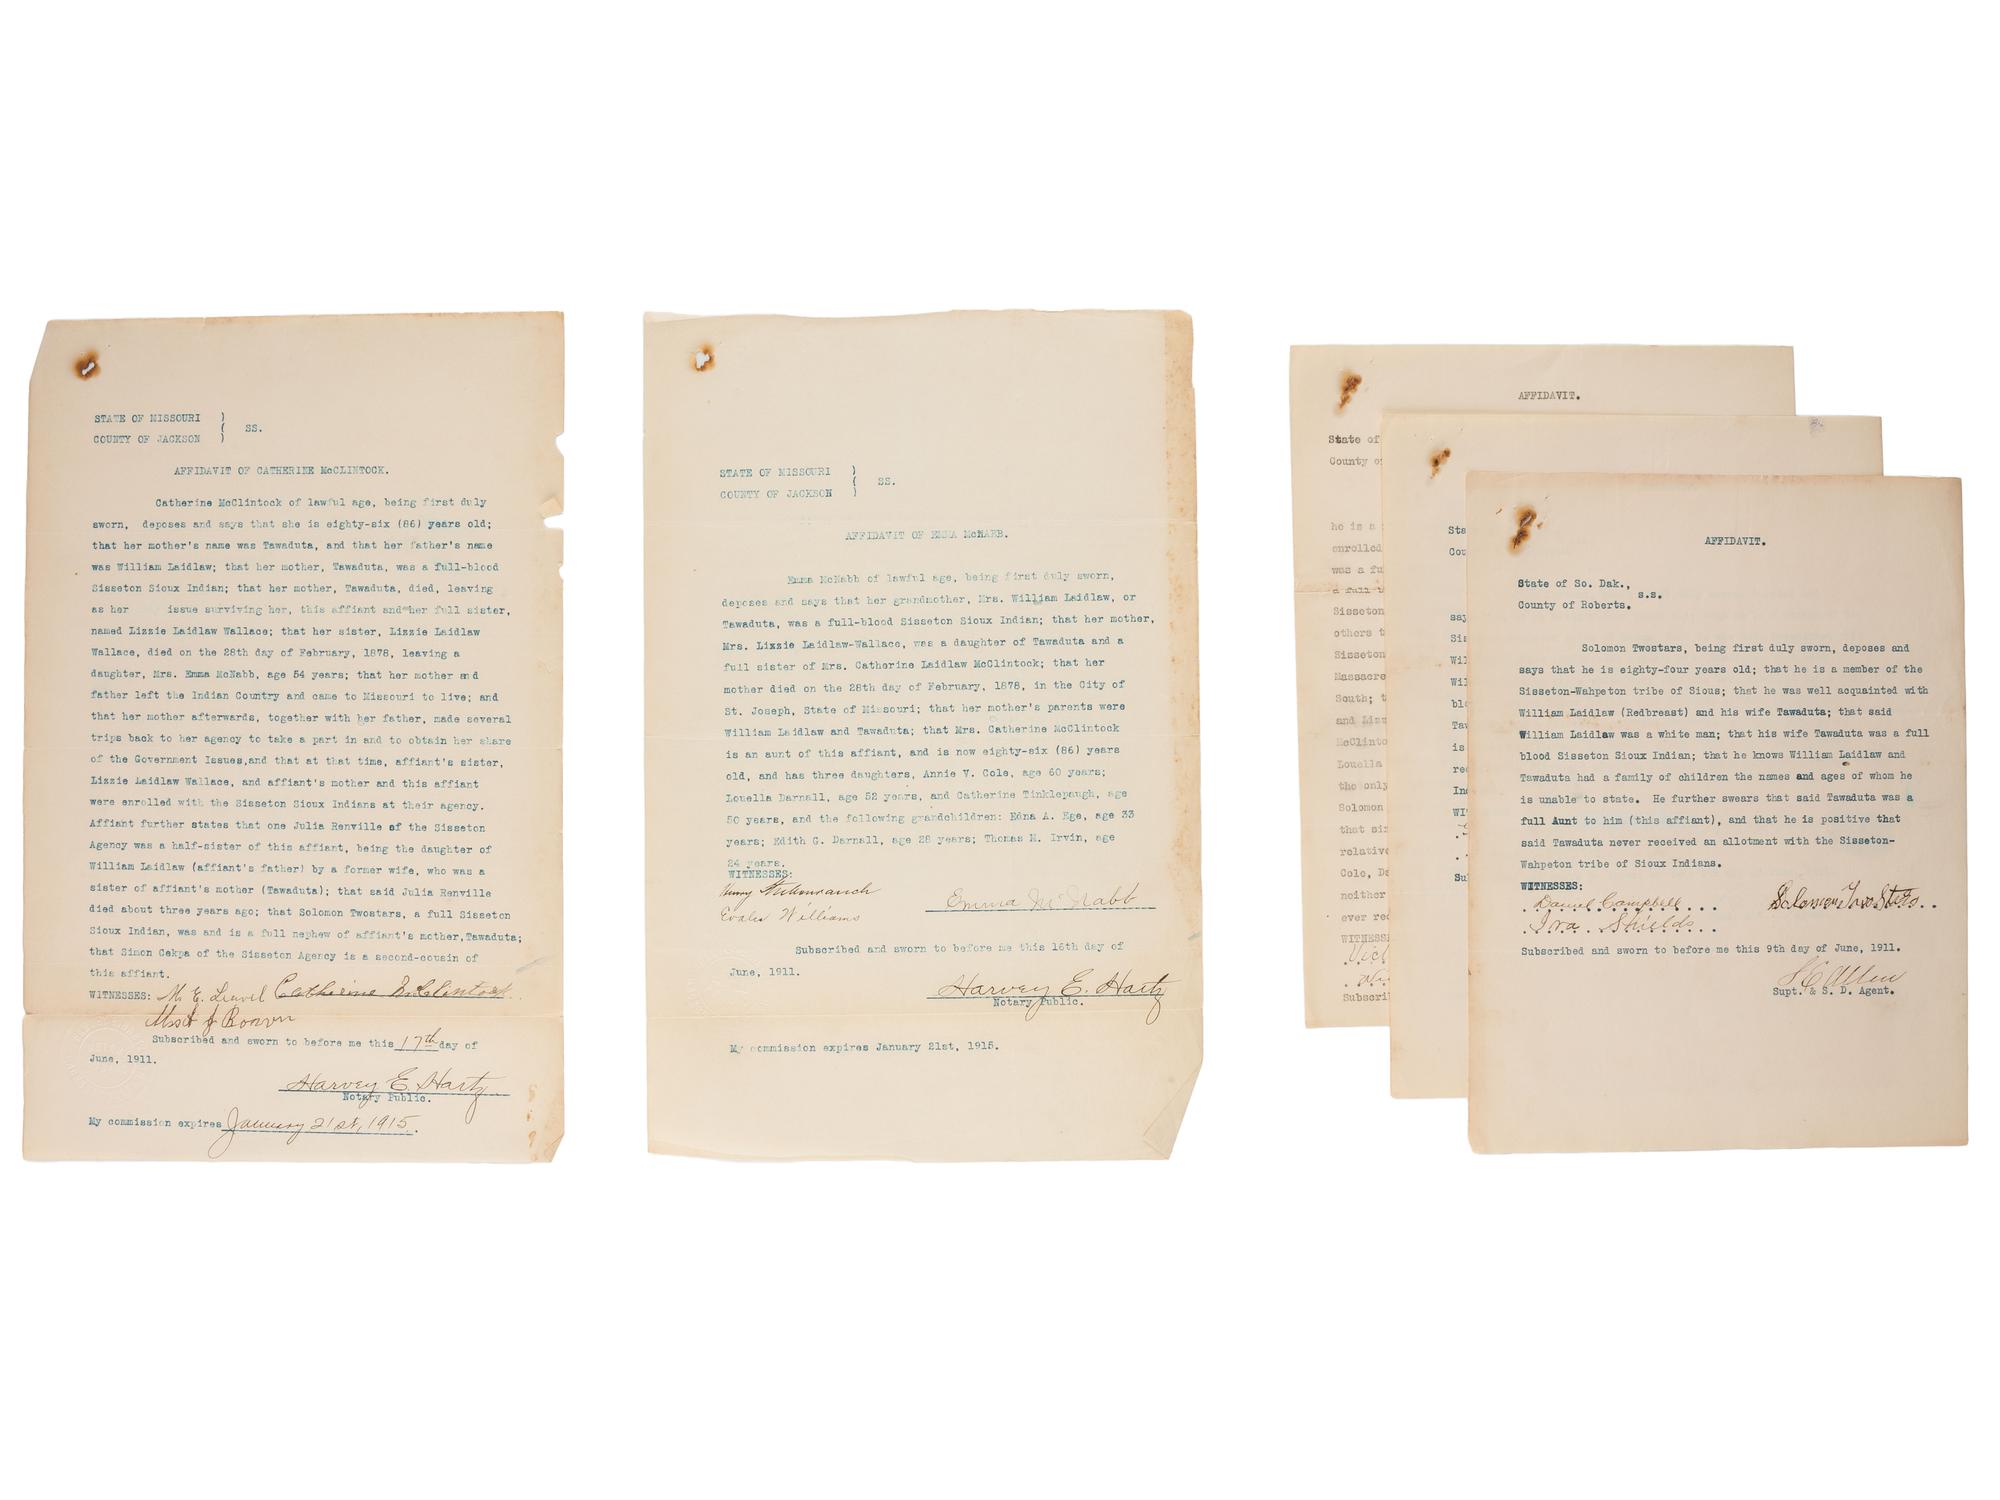 STATE OF MISSOURI )
( SS.
COUNTY OF JACKSON )
AFFIDAVIT OF CATHERINE McCLINTOCK.
Catherine McClintock of lawful age, being first duly
sworn, deposes and says that she is eighty-six (86) years old;
that her mother's name was Tawaduta, and that her father's name
was William Laidlaw; that her mother, Tawaduta, was a full-blood
Sisseton Sioux Indian; that her mother, Tawaduta, died, leaving
as her issue surviving her, this affiant and her full sister,
named Lizzie Laidlaw Wallace; that her sister, Lizzie Laidlaw
Wallace, died on the 28th day of February, 1878, leaving a
daughter, Mrs. Emma McNabb, age 54 years; that her mother and
father left the Indian Country and came to Missouri to live; and
that her mother afterwards, together with her father, made several
trips back to her agency to take a part in and to obtain her share
of the Government Issues,and that at that time, affiant's sister,
Lizzie Laidlaw Wallace, and affiant's mother and this affiant
were enrolled with the Sisseton Sioux Indians at their agency.
Affiant further states that one Julia Renville of the Sisseton
Agency was a half-sister of this affiant, being the daughter of
William Laidlaw (affiant's father) by a former wife, who was a
sister of affiant's mother (Tawaduta); that said Julia Renville
died about three years ago; that Solomon Twostars, a full Sisseton
Sioux Indian, was and is a full nephew of affiant's mother,Tawaduta;
that Simon Cekpa of the Sisseton Agency is a second-cousin of
this affiant.
WITNESSES: M. E. Catherine McClintock
Subscribed and sworn to before me this 17th day of
June, 1911.
Harvey E. Hartz
Notary Public.
My commission expires January 21st, 1915.
STATE OF MISSOURI )
( SS.
COUNTY OF JACKSON )
AFFIDAVIT OF EMMA McNABB.
Emma McNabb of lawful age, being first duly sworn,
deposes and says that her grandmother, Mrs. William Laidlaw, or
Tawaduta, was a full-blood Sisseton Sioux Indian; that her mother,
Mrs. Lizzie Laidlaw-Wallace, was a daughter of Tawaduta and a
full sister of Mrs. Catherine Laidlaw McClintock; that her
mother died on the 28th day of February, 1878, in the City of
St. Joseph, State of Missouri; that her mother's parents were
William Laidlaw and Tawaduta; that Mrs. Catherine McClintock
is an aunt of this affiant, and is now eighty-six (86) years
old, and has three daughters, Annie V. Cole, age 60 years;
Louella Darnall, age 52 years, and Catherine Tinklepaugh, age
50 years, and the following grandchildren: Edna A. Ege, age 33
years; Edith G. Darnall, age 28 years; Thomas M. Irvin, age
24 years.
WITNESSES:
Henry
Williams
Emma McNabb
Subscribed and sworn to before me this 16th day of
June, 1911.
Harvey E. Hartz
Notary Public.
My commission expires January 21st, 1915.
AFFIDAVIT.
State of
County of
he is a
enrolled
was a fu
a full
Sisseton
others t
Sisseton
Massacre
South; t
and Liz
McClinto
Louella
the only
Solomon
that si
relative
Cole, Da
neither
ever rec
WITNESS
Vict
Subscri
Sta
Cou
say
Sis
Wil
Wil
blo
Taw
is
rec
Ind
WIT
Su
AFFIDAVIT.
State of So. Dak.,
s.s.
County of Roberts.
Solomon Twostars, being first duly sworn, deposes and
says that he is eighty-four years old; that he is a member of the
Sisseton-Wahpeton tribe of Sious; that he was well acquainted with
William Laidlaw (Redbreast) and his wife Tawaduta; that said
William Laidlaw was a white man; that his wife Tawaduta was a full
blood Sisseton Sioux Indian; that he knows William Laidlaw and
Tawaduta had a family of children the names and ages of whom he
is unable to state. He further swears that said Tawaduta was a
full Aunt to him (this affiant), and that he is positive that
said Tawaduta never received an allotment with the Sisseton-
Wahpeton tribe of Sioux Indians.
WITNESSES:
Daniel Campbell
Solomon Two Stars
Ira Shields
Subscribed and sworn to before me this 9th day of June, 1911.
Allen
Supt. & S. D. Agent.